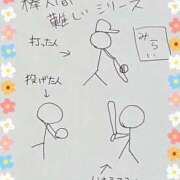 棒人間
難しいシリーズ
打ったん
みらい
投げたん